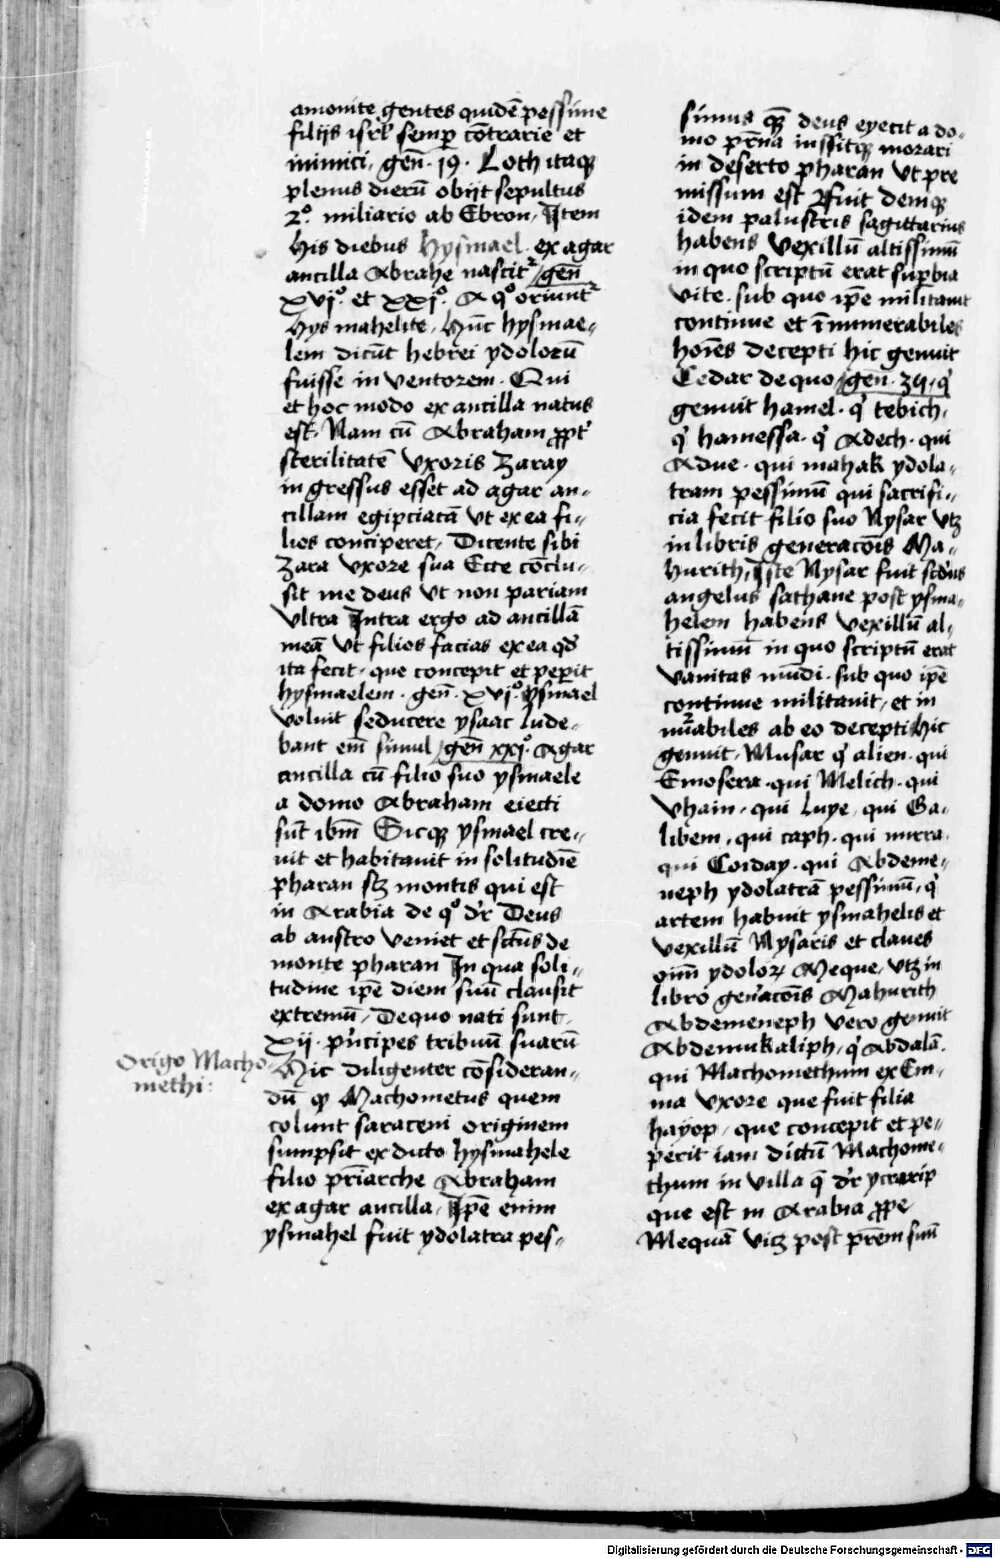 amonite gentes quidē pessime
filijs isrl̄ semꝑ cōtrarie et
inimici. gen̄. 19. Loth itaqꝫ
plenus dierū obijt sepultus
2º. miliario ab Ebron. Item
His diebus Hysmael. ex agar
ancilla Abrahe nascit᷑ / gen̄
xvjº. et xxjº. A qº oriunt᷑
Hysmahelite. Hūc hysmae-
lem dicūt hebrei ydolorū
fuisse in ventorem. Qui
et hoc modo ex ancilla natus
est. Nam cū Abraham ꝓpt᷑
sterilitatē vxoris Zaray
in gressus esset ad agar an-
cillam egipciacā vt ex ea fi-
lios conciperet. Dicente sibi
Zara vxore sua Ecce cōclu-
sit me deus vt non pariam
vltra Intra ergo ad ancillā
meā vt filios facias ex ea qd᷑
ita fecit. que concepit et peꝑit
hysmaelem. gen̄. xvjº ysmael
voluit seducere ysaac lude-
bant em̄ simul / gen̄ xxjº. Agar
ancilla cū filio suo ysmaele
a domo Abraham eiecti
sūt ibm̄ Sicqꝫ ysmael cre-
uit et habitauit in solitudīe
pharan scꝫ montis qui est
in Arabia de qº dr̄ Deus
ab austro veniet et sctūs de
monte pharan In qua soli-
tudine ipē diem suū clausit
extremū. De quo nati sunt
xij. pͥncipes tribuū suarū
Origo Macho-
methi:
Hic diligenter cōsideran-
dū ꝙ Machometus quem
colunt saraceni originem
sumpsit ex dicto hysmahele
filio pr̄iarche Abraham
ex agar ancilla. Ipē enim
ysmahel fuit ydolatra pes-
simus quē deus eyecit a do-
mo pr̄na iussitqꝫ morari
in deserto pharan vt pre
missum est Fuit deniqꝫ
idem palustris sagittarius
habens vexillū altissimū
in quo scriptū erat suꝑbia
vite. sub quo ipē militauit
continue et īnumerabiles
hoīes decepti hic genuit
Cedar de quo / gen̄. 25. qͥ
genuit hamel. qͥ tebich.
qͥ hamessa. qͥ Adech. qui
Adue. qui mahak ydola-
tram pessimū qui sacrifi-
cia fecit filio suo Nysar vtꝫ
in libris generacōis Ma-
hurith. Iste Nysar fuit scd᷑us
angelus sathane post ysma-
helem habens vexillū al-
tissimū in quo scriptū erat
vanitas mūdi. sub quo ipē
continue militauit. et in
nūabiles ab eo decepti Hic
genuit. Musar qͥ alien. qui
Emosera. qui Melich. qui
Vhain. qui Luye. qui Ga-
libem. qui caph. qui mirra.
qui Corday. qui Abdeme-
neph ydolatrā pessimū. qͥ
artem habuit ysmahelis et
vexillū Nysaris et claues
oīm ydoloꝝ Meque. vtꝫ in
libro gen᷑acōis Mahurith
Abdemeneph vero genuit
Abdemukaliph. qͥ Abdalā.
qui Machomethum ex Em-
ma vxore que fuit filia
hayop. que concepit et pe-
perit iam dictū Machome-
thum in villa q̄ dr̄ ycrarip
que est in Arabia ꝓpe
Mequā vicꝫ post pr̄em suū